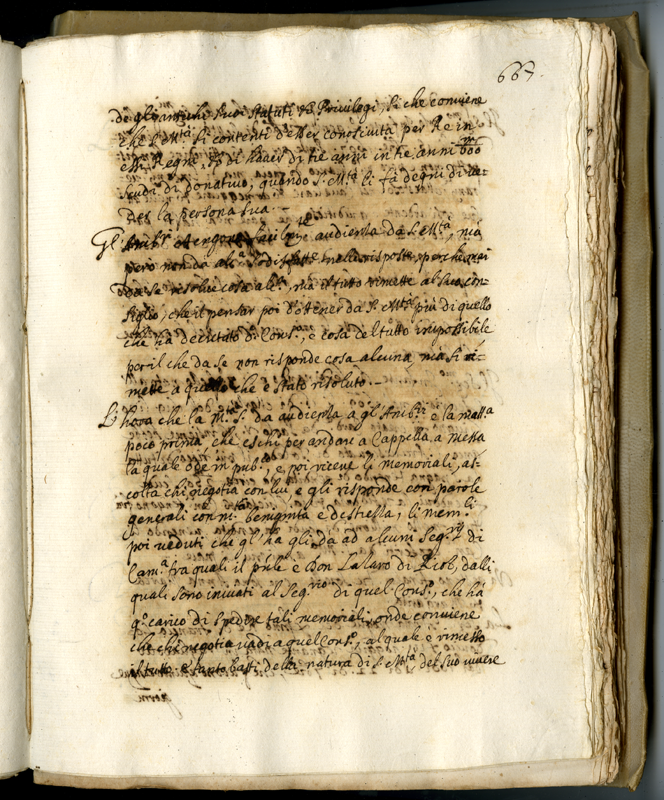 667.
de gl'antichi suoi statuti et Privilegi, si che conviene
che S. Mta si contenti d'esser conosciuta per Re in
essi Regni, et di haver di tre anni in tre anni 600m
scudi di donativo, quando S. Mta li fa degni di ve-
der la persona sua.
Gl'Ambri ottengono audienza da S. Mta, ma
pero non da alca nelle risposte, perche mai
da se risolve cosa alca, ma il tutto rimette al suo con-
siglio, che il pensar poi d'ottener da S. Mta più di quello
che ha decretato il Conso, è cosa del tutto impossibile
per il che da se non risponde cosa alcuna, ma si ri-
mette a quello che è stato risoluto.
L'hora che la Mta S. da audienza a gl'Ambri è la matta
poco prima che eschi per andare a Cappella a messa
la quale ode in pubco, e poi riceve li memoriali, as-
colta chi negotia con lui, e gli risponde con parole
generali con ma benignità e destrezza, li memli
poi veduti che gl'ha gli da ad alcuni Segrii di
Cama fra quali il ple è Don Lazaro di dalli
quali sono inviati al Segrio di quel Conso, che ha
qo carico di spedire tali memoriali, onde conviene
che chi negotia vadi a quel Conso, al quale è rimesso
il tutto, e tanto basti della natura di S. Mta del suo vivere